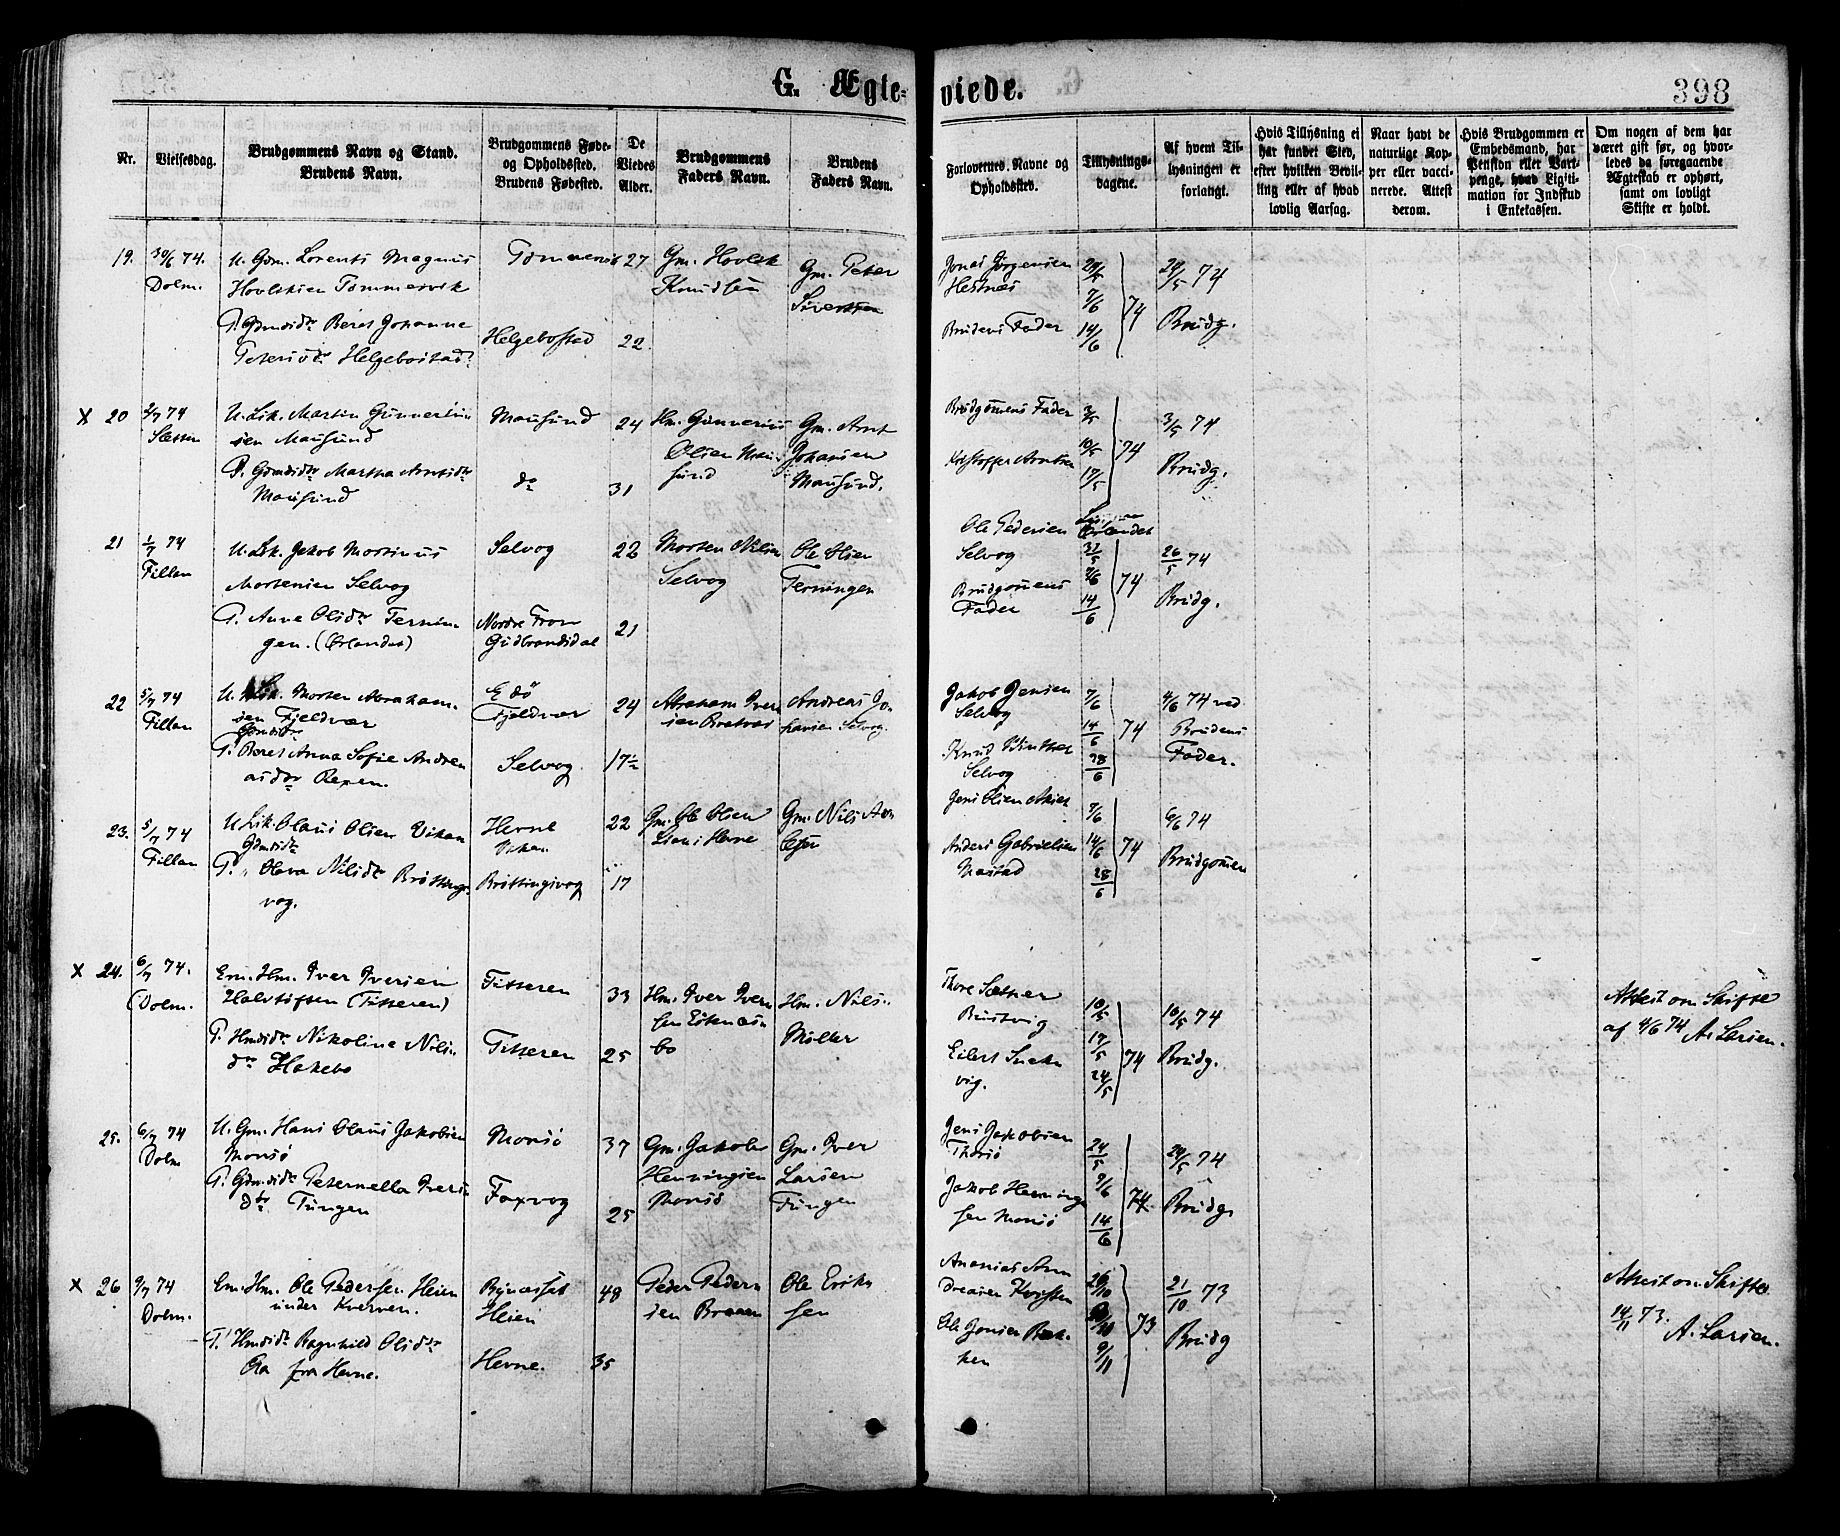 G. Ægte=
viede.
398
Nr.
Vielsesdag.
Brudgommens Navn og Stand.
Brudens Navn.
Brudgommens Føde-
og Opholdssted.
Brudens Fødested.
De
Viedes
Alder.
Brudgommens
Faders Navn.
Brudens
Faders Navn.
Forlovernes Navne og
Opholdssted.
Tillysnings-
dagene.
Af hvem Til-
lysningen er
forlangt.
Hvis Tillysning ei
har fundet Sted,
efter hvilken Bevil-
ling eller af hvad
lovlig Aarsag.
Naar havt de
naturlige Kop-
per eller vacci-
nerede. Attest
derom.
Hvis Brudgommen er
Embedsmand, har
Pension eller Vart-
penge, hvad Ligiti-
mation for Indskud
i Enkekassen.
Om nogen af dem har
været gift før, og hvor-
ledes da foregaaende
Ægteskab er ophørt,
samt om lovligt
Skifte er holdt.
19. 30/6 74.
Dolm.
U. Gdm. Lorents Magnus
Hovlsen Tømmervik
P. Gdmdsdtr Beret Johanne
Petersdtr Helgebostad
Tømmervik 27
Helgebostad 22
Gm. Hovlsk
Knudsen
Gm. Peter
Sivertsen
Jonas Jørgensen
Hestnes
Brudens Fader
29/5
7/6
14/6
74
29/5 74
Brudg.
X 20 2/7 74
U. Lsk. Martin Gunnerius
sen Mausund
P. Gdmdsdtr Martha Arntsdtr
Mausund
Mausund 24
do 31
Hm. Gunnerius
Olsen Mau-
sund
Gm. Arnt
Johansen
Mausund.
Brudgomens Fader
Kristoffer Arntsen
3/5
10/5
17/5
74
3/5 74
Brudg.
21 1/7 74
Fillan
U. Lsk. Jakob Martinus
Mortensen Selvog
P. Anne Olsdtr Ternin-
gen. (Ørlandet)
Selvog 22
Nordre Fron
Gudbrandsdal 21
Morten Nilsen
Selvog
Ole Olsen
Terningen
Ole Pedersen
Selvog
Brudgomens
Fader
Ørlandet
31/5
7/6
14/6
74
26/5 74
Brudg.
22 5/7 74
Fillan
U. Lsk. Morten Abraham-
sen Fjeldvær
Gdmdsdtr
P. Beret Anna Sofie Andrea
asdtr Rexen.
Edø
Fjeldvær 24
Selvog 17½
Abraham Iver
sen Bratvær
Andreas Jo-
hansen Selvog.
Jakob Jensen
Selvog
Knud
Selvog
7/6
14/6
28/6
74
4/6 74 ved
Brudens
Fader.
23. 5/7 74
Fillan
U. Lsk. Olaus Olsen Vikan
Gdmdsdtr
P. Olava Nilsdtr Brøttings-
vog.
Hevne
Vikan 22
Brøttingsvog 17
Gm. Ole Olsen
Gm. Nils
Jens Olsen
Anders Gabrielsen
Nastad
7/6
14/6
28/6
74
6/6 74
Brudgomen
X 24. 6/7 74.
(Dolm.
Em. Hm. Iver Iversen
(Titteren)
P. Hmdsdtr Nikoline Nils-
dtr Hakebo
Titteren 33
Titteren 25
Hm. Iver Iver
sen
bo
Hm. Nils
Møller
Thore Sætner
Eilert
vig.
10/5
17/5
24/5
74
10/5 74
Brudg.
Attest om Skifte
af 4/6 74 A. Larsen.
25. 6/7 74
Dolm
U. Gm. Hans Olaus Jakobsen
Morsø
P. Gdmdsdtr Peternella Ivers
dtr Tungen
Morsø 37
Faxvog 25
Gm. Jakob
Henningsen
Morsø
Gm. Iver
Larsen
Tungen
Jens Jakobsen
Thorsø
Jakob Henning-
sen Morsø
24/5
7/6
14/6
74
29/5 74
Brudg.
X 26 9/7 74
Dolm.
Em. Hm. Ole Pedersen Heien
under Kverven.
P. Hmdsdtr Ragnhild Olsdtr
Aa fra Hevne.
Bynesset
Heien 48
Hevne. 35
Peder Peder
sen Braaen
Ole Erik-
sen
Ananias An
dreasen Kvisten
Ole Jonsen Bak-
ken
26/10
9/11
73
21/10 73
Brudg
Attest om Skifte
14/11 73.
A. Larsen.